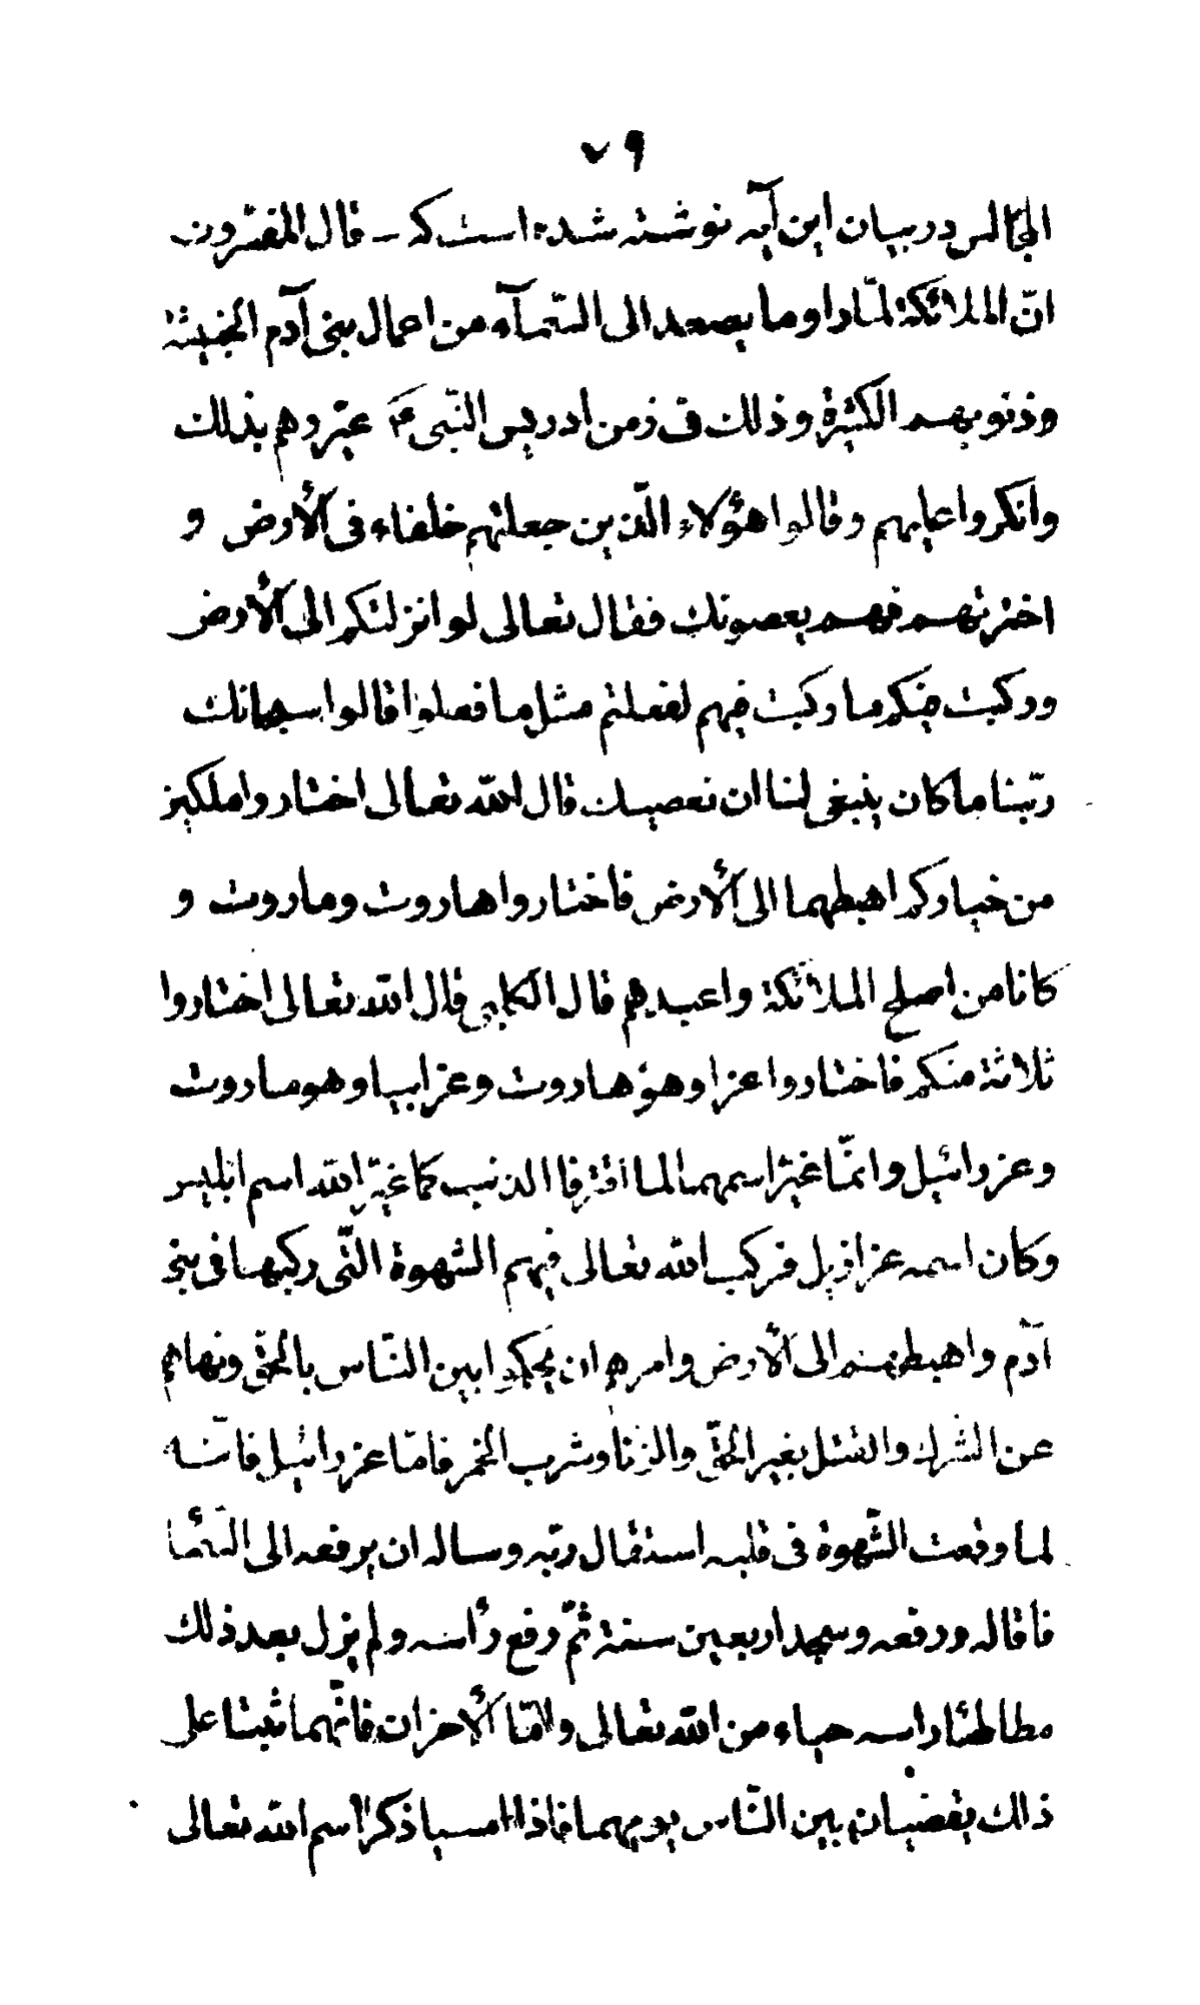 ٧٩
المجالس در بیان این آیه نوشته شده است که ـ قال المفسّرون
انّ الملائکة لمّا راوا ما یصعد الی السّمآء من اعمال بنی آدم الخبیثة
و ذنوبهم الکثیرة و ذلك فی زمن ادریس النّبی ع عیّروهم بذلك
و انکروا علیهم و قالوا هؤلاء الّذین جعلتهم خلفاء فی الأرض و
اخترتهم فهم یعصونك فقال تعالی لو انزلتکم الی الأرض
و رکبت فیکم ما رکبت فیهم لفعلتم مثل ما فعلوا قالوا سبحانك
ربّنا ما کان ینبغی لنا ان نعصیك قال الله تعالی اختاروا ملکین
من خیارکم اهبطهما الی الأرض فاختاروا هاروت و ماروت و
کانا من اصلح الملائکة و اعبدهم قال الکلبی قال الله تعالی اختاروا
ثلاثة منکم فاختاروا عزا و هو هاروت و عزابیا و هو ماروت
و عزرائیل و انمّا غیّر اسمهما لما اقترفا الذنب کما غیّر الله اسم ابلیس
و کان اسمه عزازیل فرکب الله تعالی فیهم الشهوة الّتی رکبها فی بنی
آدم و اهبطهم الی الأرض و امرهم ان یحکموا بین النّاس بالحقّ و نهاهم
عن الشرك و القتل بغیر الحقّ و الزنا و شرب الخمر فامّا عزرائیل فانّه
لما وقعت الشّهوة فی قلبه استقال ربّه و ساله ان یرفعه الی السّماء
فاقاله و رفعه و سجد اربعین سنة ثمّ رفع رأسه و لم یزل بعد ذلك
مطاطئا راسه حیاء من الله تعالی و امّا الأخران فانّهما ثبتا علی
ذلك یقضیان بین النّاس یومهما فاذا امسیا ذکرا اسم الله تعالی